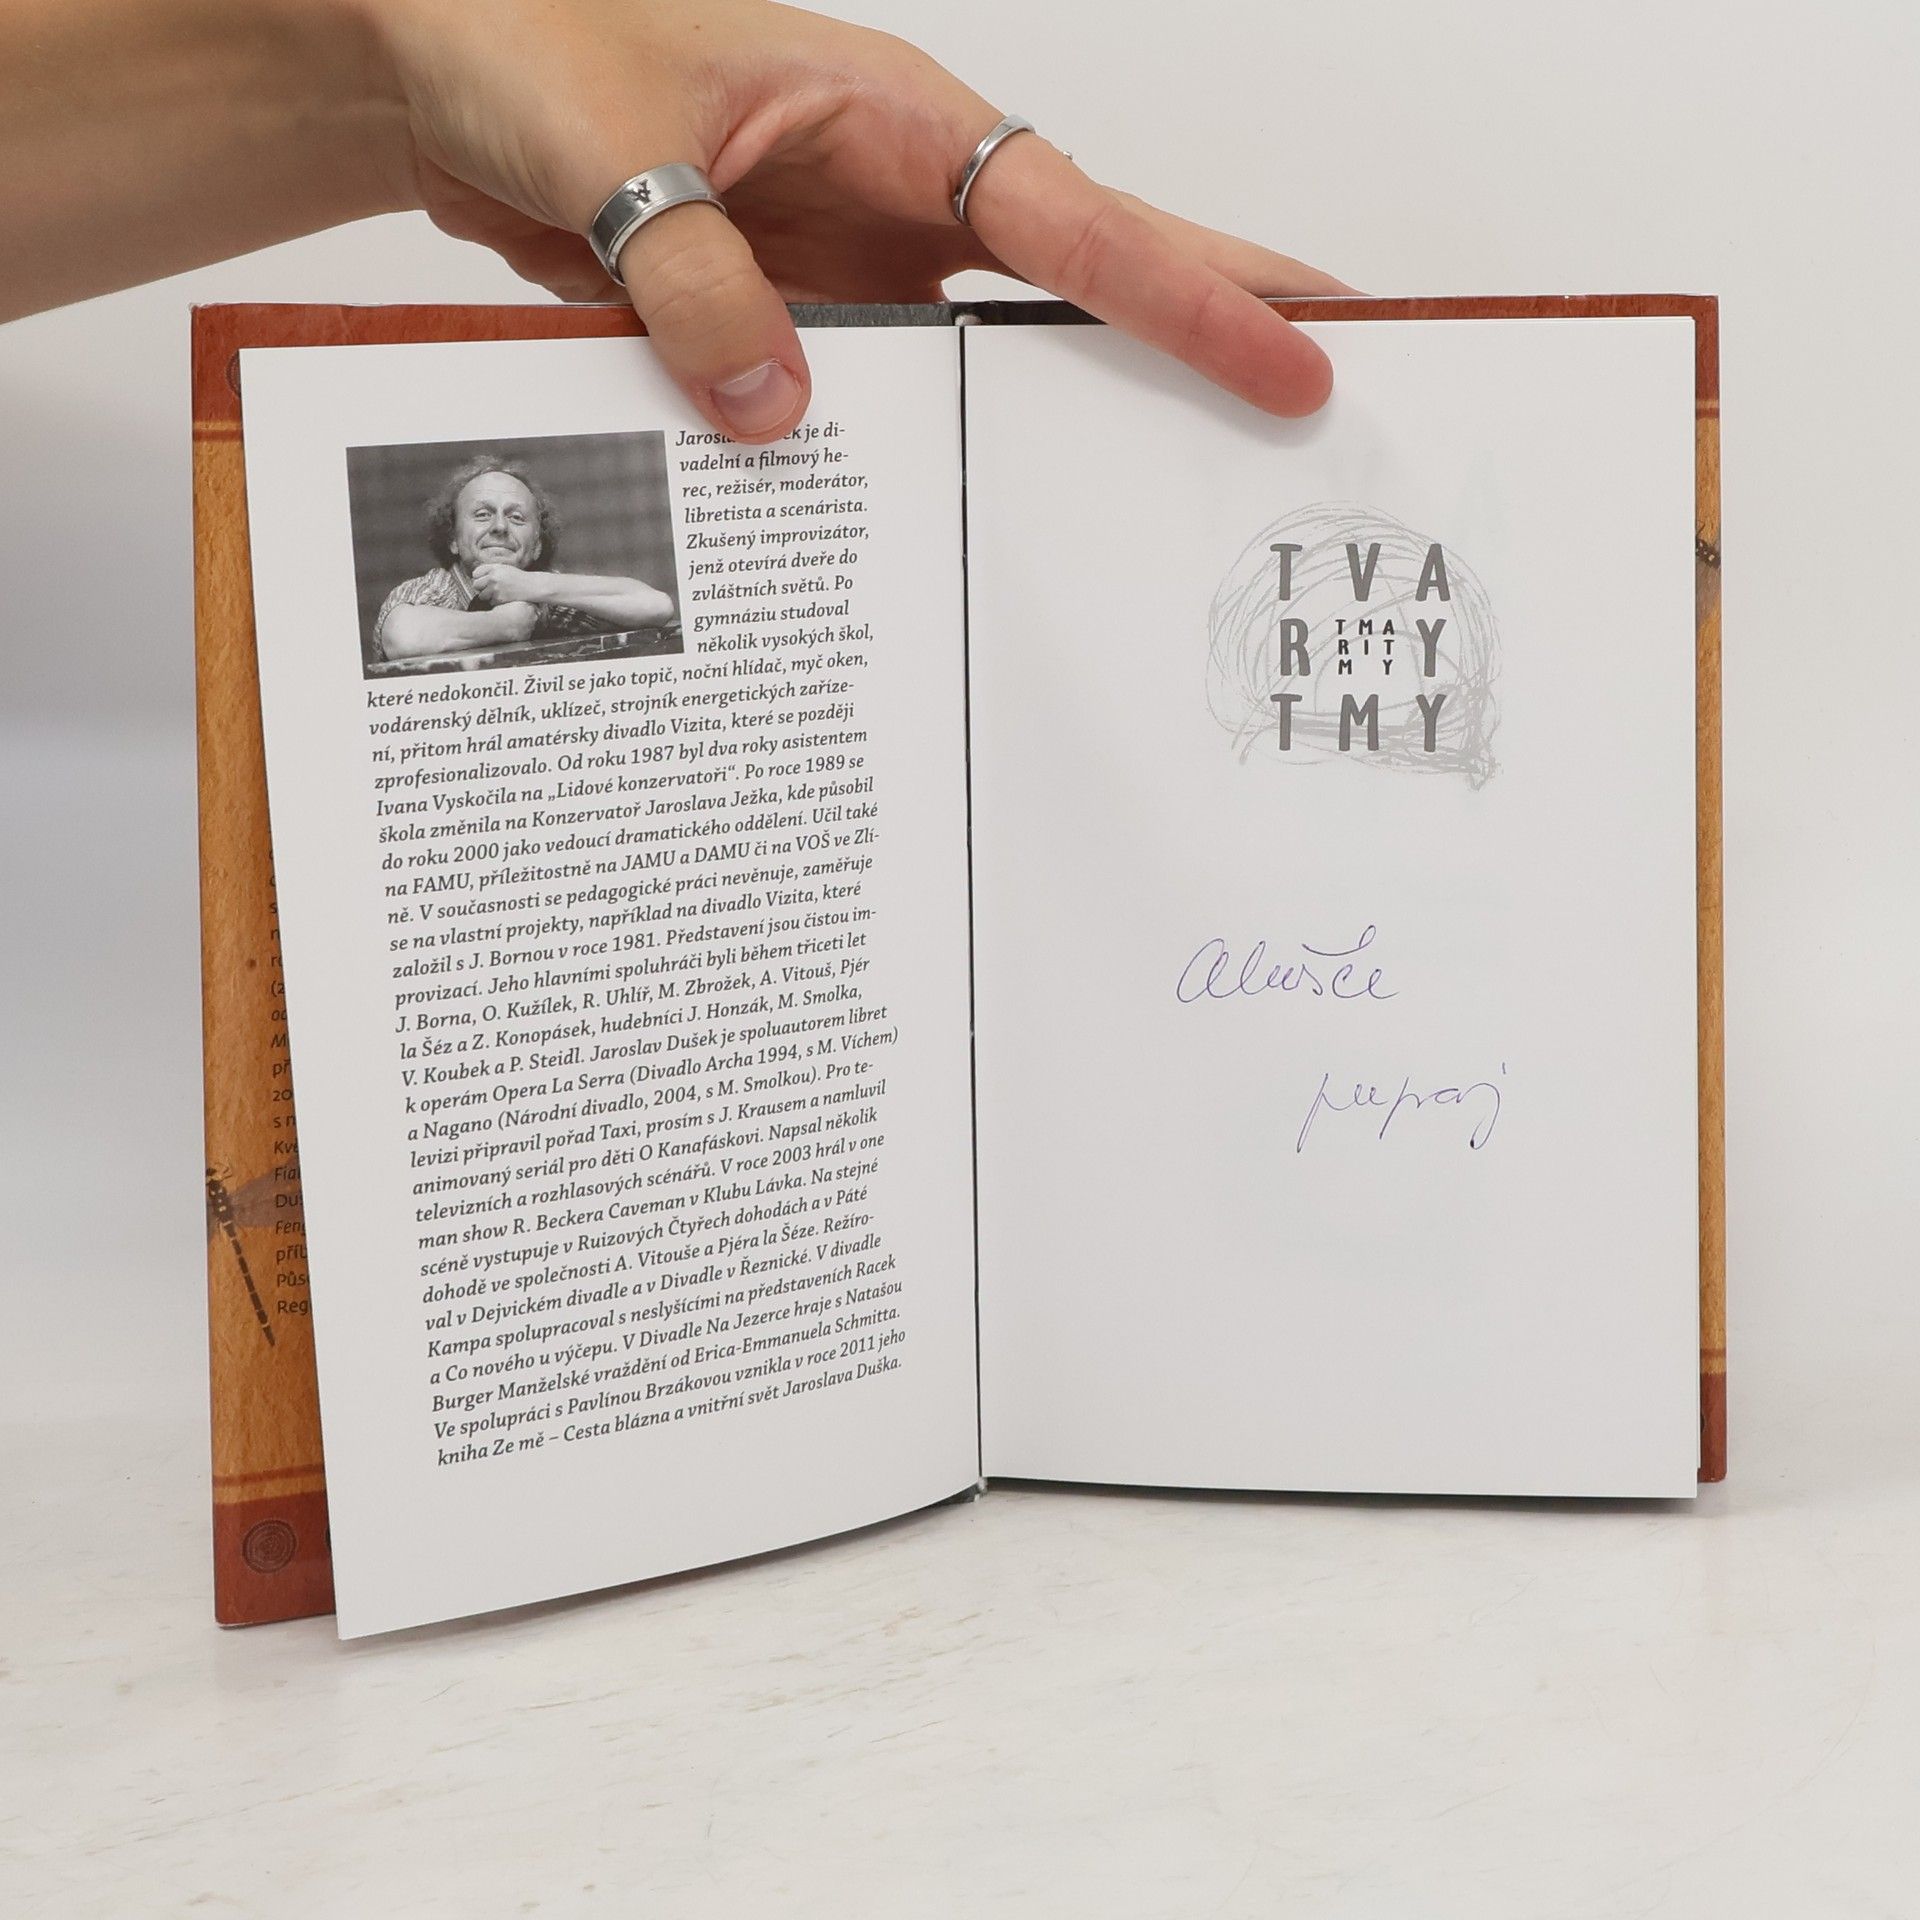 Jarosl ek je di-
vadelní a filmový he-
rec, režisér, moderátor,
libretista a scenárista.
Zkušený improvizátor,
jenž otevírá dveře do
zvláštních světů. Po
gymnáziu studoval
několik vysokých škol,
které nedokončil. Živil se jako topič, noční hlídač, myč oken,
vodárenský dělník, uklízeč, strojník energetických zaříze-
ní, přitom hrál amatérsky divadlo Vizita, které se později
zprofesionalizovalo. Od roku 1987 byl dva roky asistentem
Ivana Vyskočila na „Lidové konzervatoři“. Po roce 1989 se
škola změnila na Konzervatoř Jaroslava Ježka, kde působil
do roku 2000 jako vedoucí dramatického oddělení. Učil také
na FAMU, příležitostně na JAMU a DAMU či na VOŠ ve Zlí-
ně. V současnosti se pedagogické práci nevěnuje, zaměřuje
se na vlastní projekty, například na divadlo Vizita, které
založil s J. Bornou v roce 1981. Představení jsou čistou im-
provizací. Jeho hlavními spoluhráči byli během třiceti let
J. Borna, O. Kužílek, R. Uhlíř, M. Zbrožek, A. Vitouš, Pjér
la Šéz a Z. Konopásek, hudebníci J. Honzák, M. Smolka,
V. Koubek a P. Steidl. Jaroslav Dušek je spoluautorem libret
k operám Opera La Serra (Divadlo Archa 1994, s M. Víchem)
a Nagano (Národní divadlo, 2004, s M. Smolkou). Pro te-
levizi připravil pořad Taxi, prosím s J. Krausem a namluvil
animovaný seriál pro děti O Kanafáskovi. Napsal několik
televizních a rozhlasových scénářů. V roce 2003 hrál v one
man show R. Beckera Caveman v Klubu Lávka. Na stejné
scéně vystupuje v Ruizových Čtyřech dohodách a v Páté
dohodě ve společnosti A. Vitouše a Pjéra la Šéze. Režíro-
val v Dejvickém divadle a v Divadle v Řeznické. V divadle
Kampa spolupracoval s neslyšícími na představeních Racek
a Co nového u výčepu. V Divadle Na Jezerce hraje s Natašou
Burger Manželské vraždění od Erica-Emmanuela Schmitta.
Ve spolupráci s Pavlínou Brzákovou vznikla v roce 2011 jeho
kniha Ze mě – Cesta blázna a vnitřní svět Jaroslava Duška.
TVA
R TMA Y
RIT
M Y
TMY
Alušce